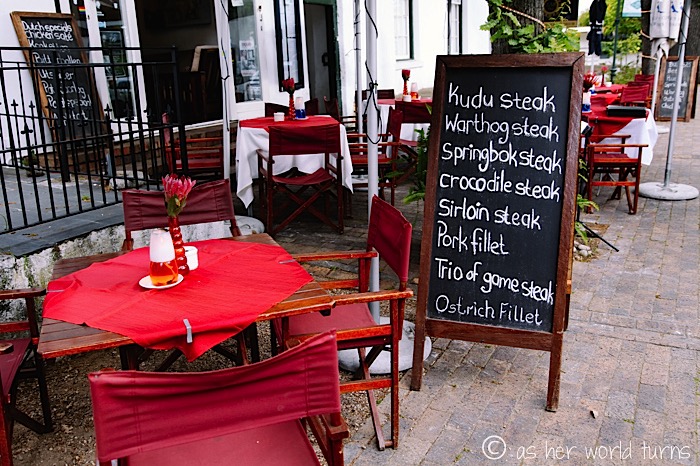 Dutch specials
Kudu steak
Warthog steak
Springbok steak
crocodile steak
Sirloin steak
Pork fillet
Trio of game steak
Ostrich Fillet
© as her world turns